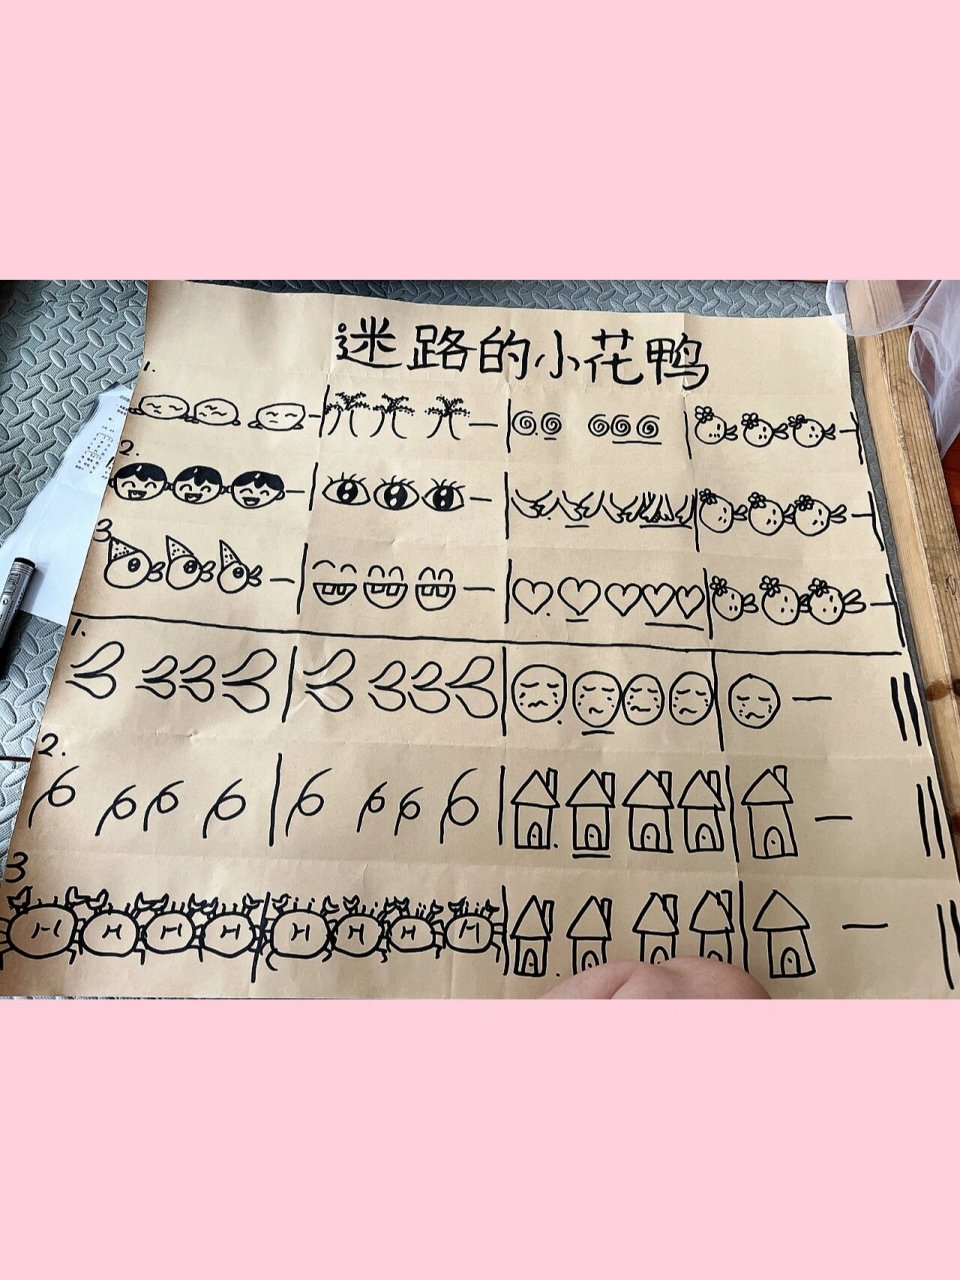 迷路的小花鸭
1.
2.
3
1.
2.
3